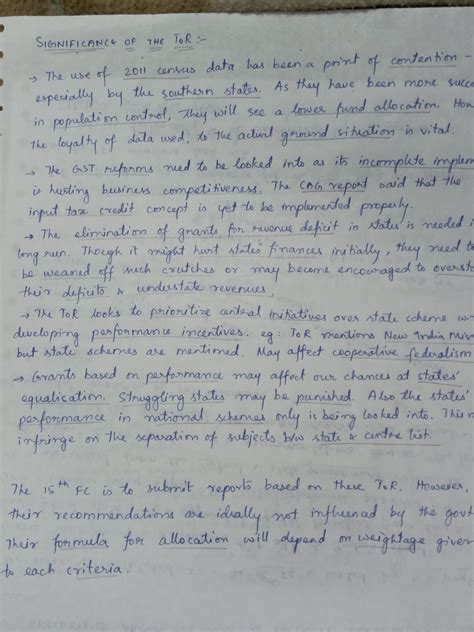 SIGNIFICANCE OF THE ToR :-
→ The use of 2011 census data has been a point of contention -
especially by the southern states. As they have been more succe
in population control, they will see a lower fund allocation. How
The loyalty of data used, to the actual ground situation is vital.
→ The GST reforms need to be looked into as its incomplete implem
is hurting business competitiveness. The CAG report said that the
input tax credit concept is yet to be implemented properly.
→ The elimination of grants for revenue deficit in states is needed i
long run. Though it might hurt states' finances initially, they need to
be weaned off such crutches or may become encouraged to oversta
their deficits & understate revenues.
→ The ToR looks to prioritize central initiatives over state scheme w-
developing performance incentives. eg: ToR mentions New India Miss
but state schemes are mentioned. May affect cooperative federalism
→ Grants based on performance may affect our chances at states'
equalisation. Struggling states may be punished. Also the states'
performance in national schemes only is being looked into. This m
infringe on the separation of subjects b/w state & centre list.
The 15th FC is to submit reports based on these ToR. However,
their recommendations are ideally not influenced by the govt
Their formula for allocation will depend on weightage given
to each criteria.